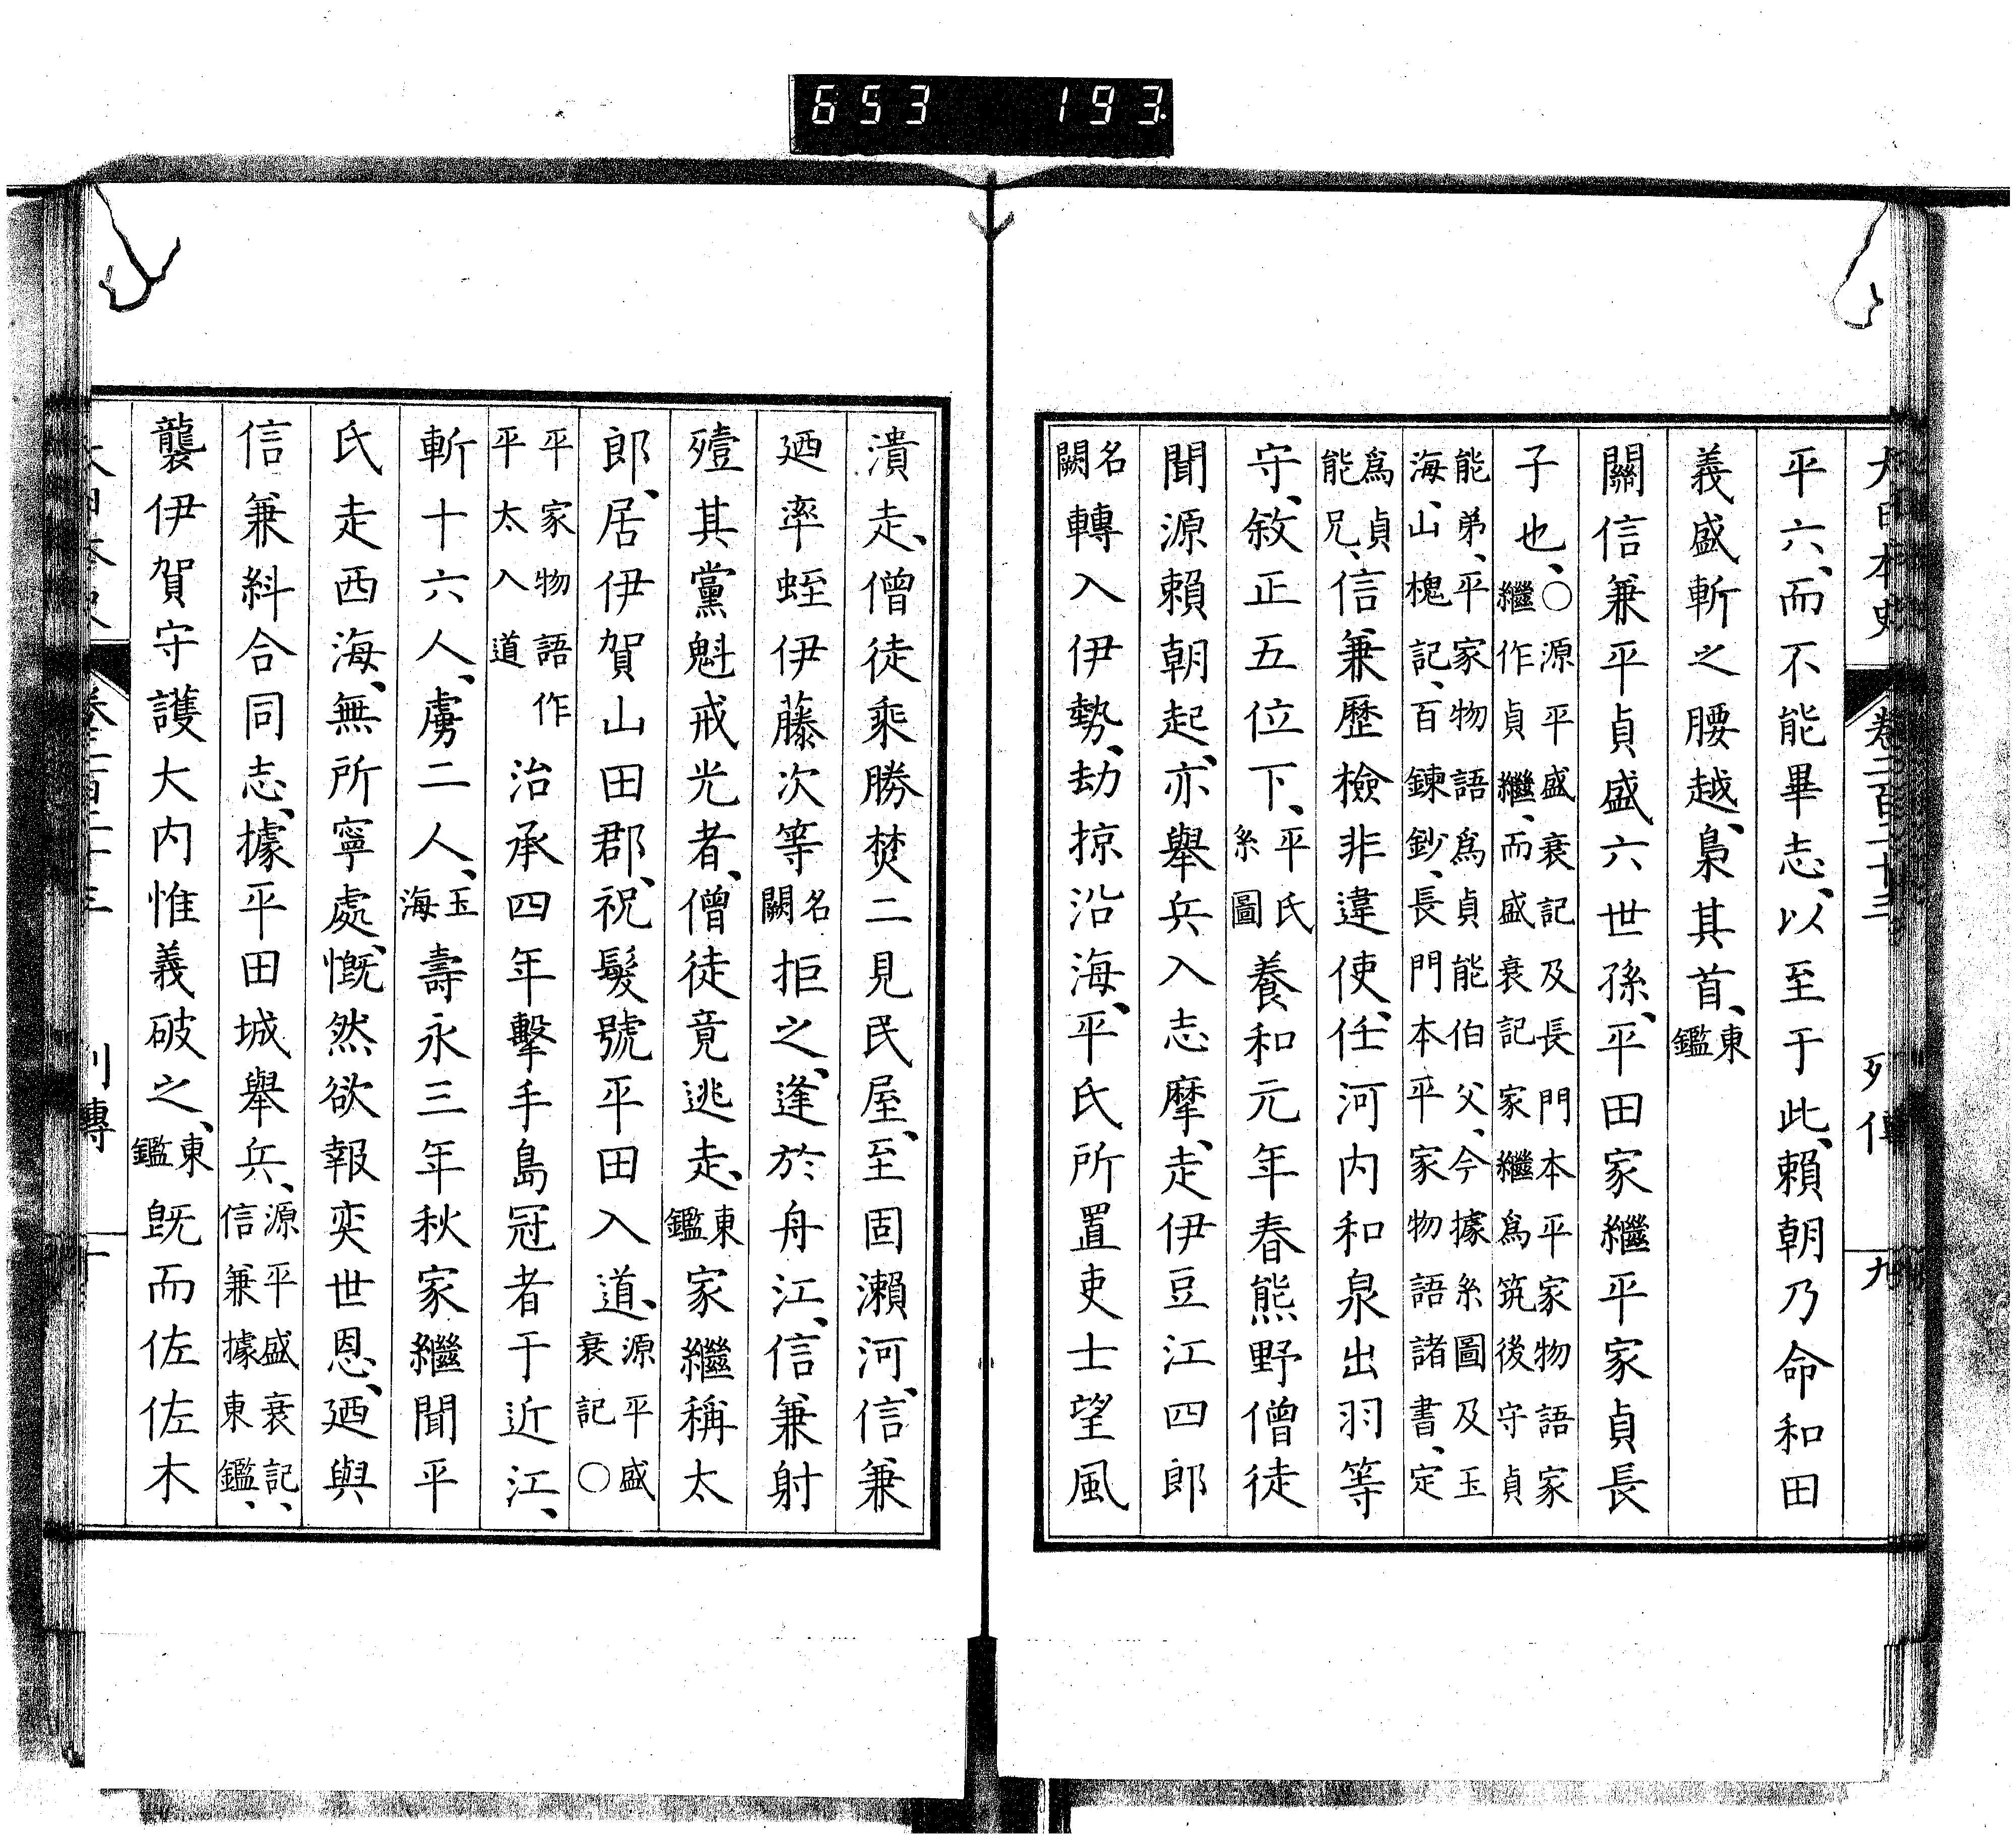 653 193
大日本史 卷二百二十三 列傳 九
平六、而不能畢志、以至于此、賴朝乃命和田
義盛斬之腰越、梟其首、東鑑
關信兼平貞盛六世孫、平田家繼平家貞長
子也、○源平盛衰記及長門本平家物語家繼作貞繼、而盛衰記家繼爲筑後守貞
能弟、平家物語爲貞能伯父、今據系圖及玉海、山槐記、百鍊鈔、長門本平家物語諸書、定
爲貞能兄、信兼歷檢非違使、任河内和泉出羽等
守、敘正五位下、平氏系圖養和元年春熊野僧徒
聞源賴朝起、亦舉兵入志摩、走伊豆江四郎
名闕轉入伊勢、劫掠沿海、平氏所置吏士望風
潰走、僧徒乘勝焚二見民屋、至固瀨河、信兼
廼率蛭伊藤次等名闕拒之、逢於舟江、信兼射
殪其黨魁戒光者、僧徒竟逃走、東鑑家繼稱太
郎、居伊賀山田郡、祝髮號平田入道、源平盛衰記○
平家物語作平太入道治承四年擊手島冠者于近江、
斬十六人、虜二人、玉海壽永三年秋家繼聞平
氏走西海、無所寧處、慨然欲報奕世恩、廼與
信兼糾合同志、據平田城舉兵、源平盛衰記、信兼據東鑑、
襲伊賀守護大内惟義破之、東鑑既而佐佐木
列傳